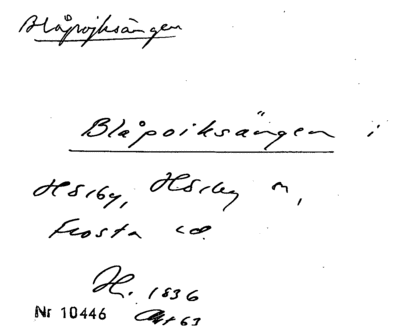 Blåpojksängen
Blåpoiksängen i
Hörby, Hörby sn,
Frosta hd.
H. 1836
Nr 10446 63